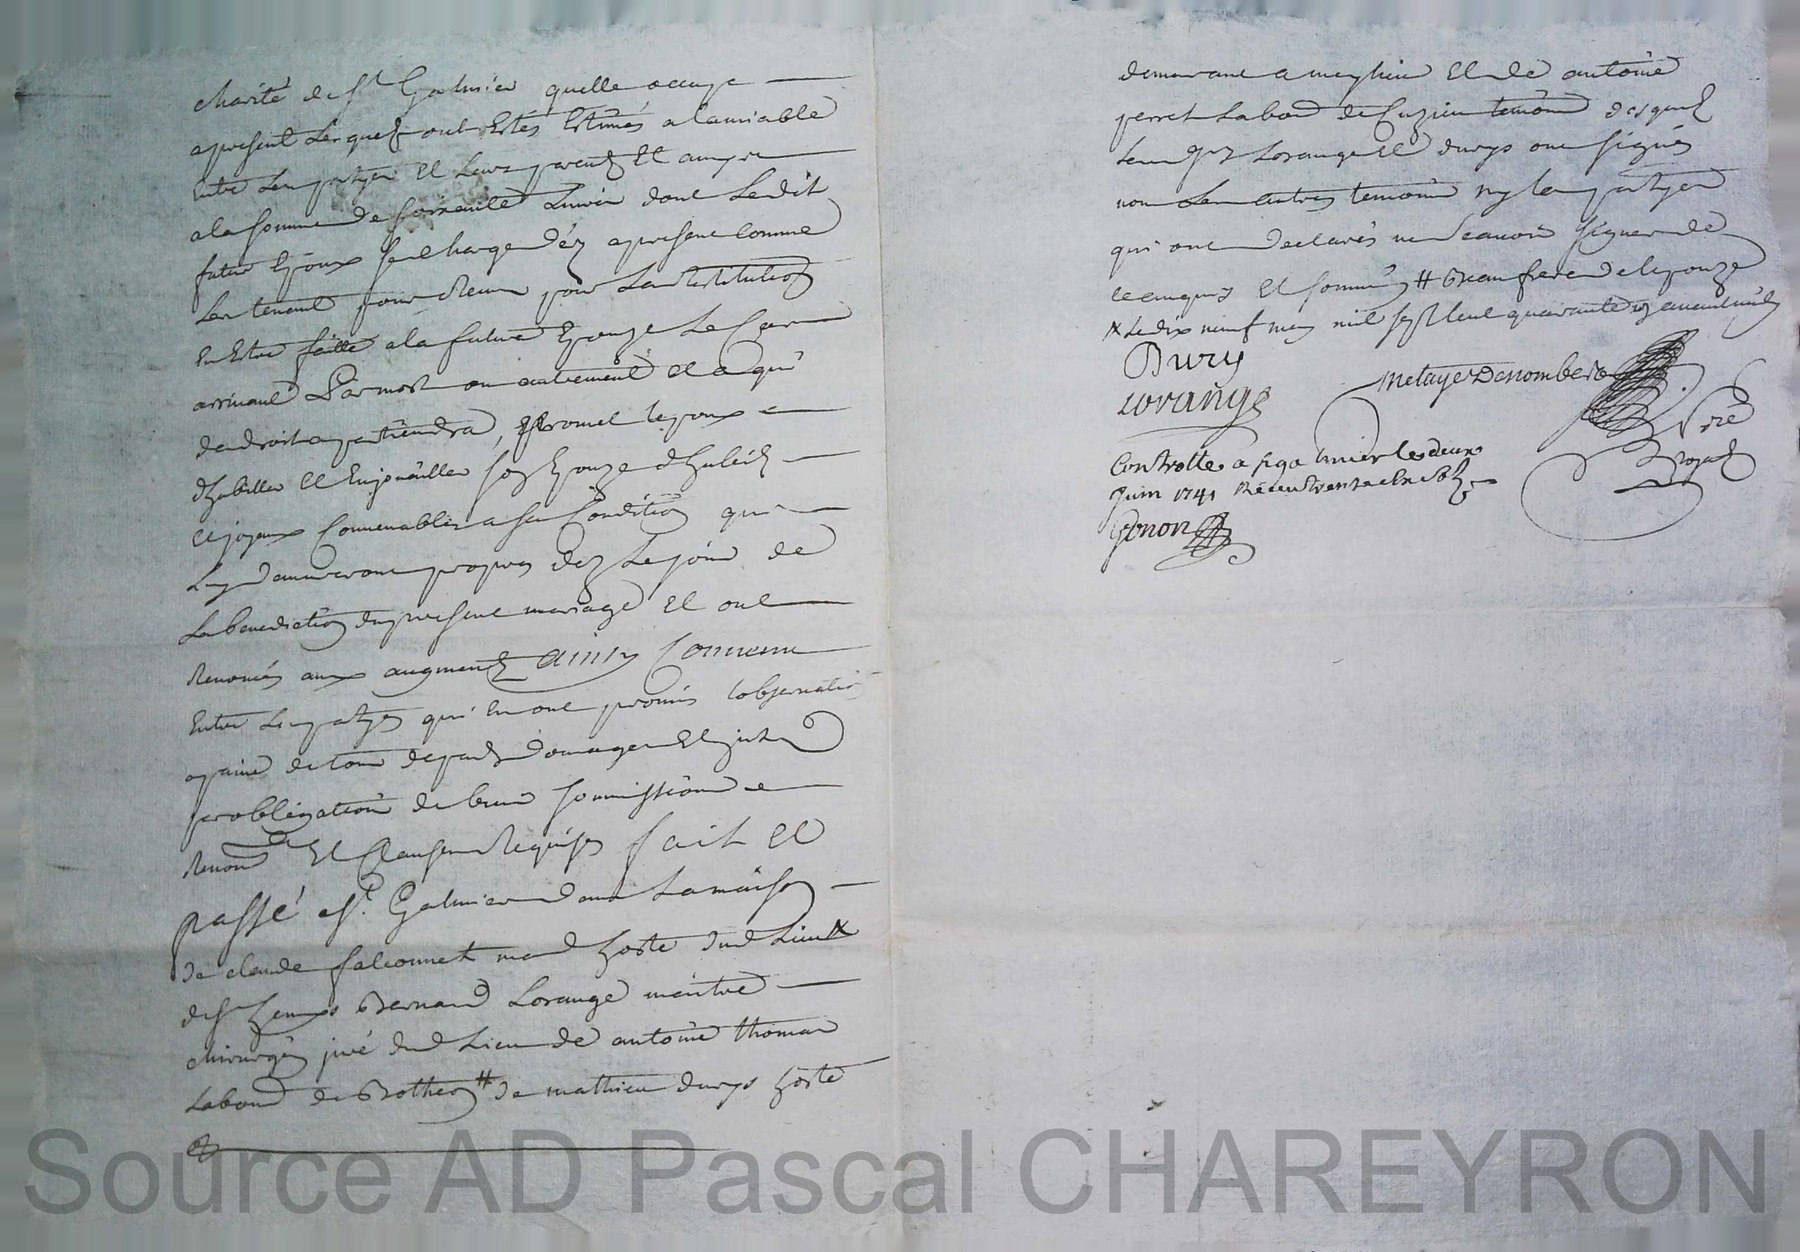 charité de St Galmier quelle occupe
apresent Lesquels ont Estés Estimés a lamiable
Entre Les partyes Et Leurs parents Et amys
a la somme de Livres dont Ledit
futur Epoux se Charge d'éz apresent Comme
Les tenant pour Receu pour La Restitution
En Estre faitte a la future Epouze Le Cas
arrivant Par mort ou autrement Et a qui
de droit apartiendra, promet lepoux
d'habiller Et Enjoüailler son Epouze d'habits
Et joyaux Convenables a sa Condition qui
Luy demeureront propres dez Le jour de
La benediction du present mariage Et ont
Renoncés aux augments ainsy Convenu
Entre Les partyes qui En ont promis lobservation
apeine de tous depens domages Et
par obligation de biens soumissions
Renon Et Clauses Requises fait Et
passé a St Galmier dans La maison
de claude falconnet md hoste dud Lieu X
de Sr Bernard Lorange maitre
chirurgien juré dud Lieu de antoine thomas
Labour de Botheon # de mathieu durys hoste
demeurant a meylieu Et de antoine
perret Labour de Cuzieu temoins desquels
Lesd Srs Lorange Et durys ont signés
non Les autres temoins ny les partyes
qui ont declarés ne scavoir signer de
ce enquis Et sommés # Beaufrere de lepouze
X Le dix neuf may mil sept cent quarante un avant midy
Dury
Lorange
Metayer Desnombe
Controllé a St galmier le deux
Juin 1741 Receu
Gonon
Source AD Pascal CHAREYRON